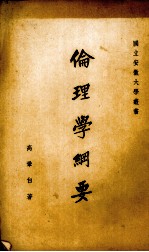 國立安徽大學叢書
倫理學綱要